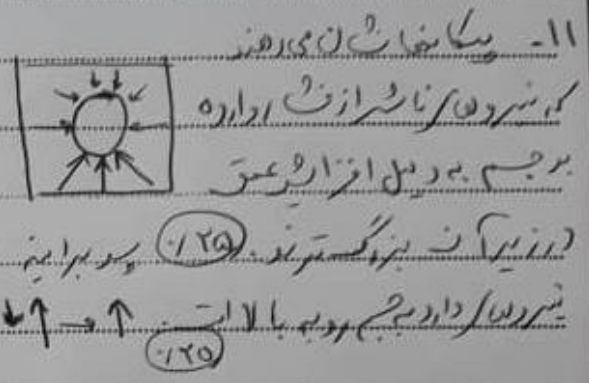 ۱۱- پیکانها نشان می‌دهند
که نیروهای ناشی از فشار وارده
بر جسم به دلیل افزایش عمق
در زیر آن بزرگترند. (۰/۲۵) پس برآیند
نیروهای وارد بر جسم رو به بالا است. ↓↑ → ↑
(۰/۲۵)